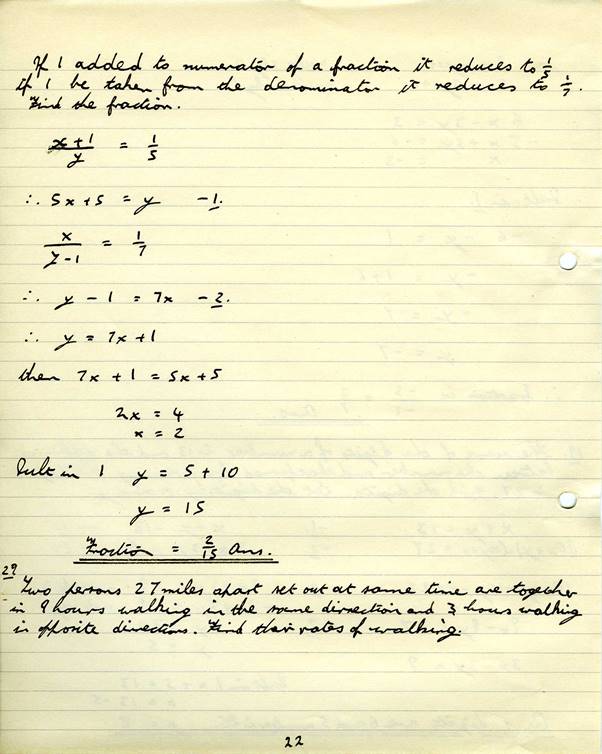 If 1 added to numerator of a fraction it reduces to 1/5
if 1 be taken from the denominator it reduces to 1/7.
Find the fraction.
x+1/y = 1/5
∴ 5x+5 = y - 1.
x/y-1 = 1/7
∴ y - 1 = 7x - 2.
∴ y = 7x+1
then 7x+1 = 5x+5
2x = 4
x = 2
Subt in 1 y = 5+10
y = 15
Fraction = 2/15 Ans.
29
Two persons 27 miles apart set out at same time are together
in 9 hours walking in the same direction and 3 hours walking
in opposite directions. Find their rates of walking.
22